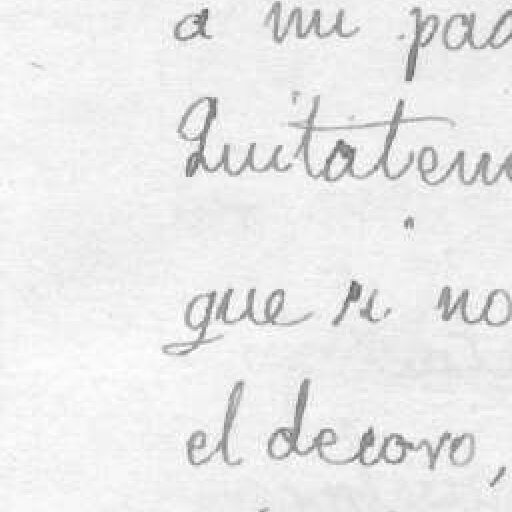 a mi pad
Quitatem
que si no
el decoro,